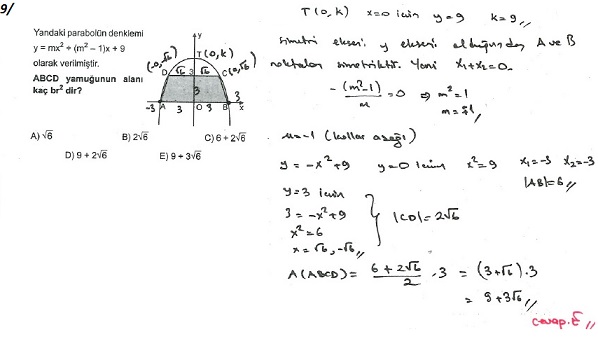 9/
Yandaki parabolün denklemi
y = mx² + (m² – 1)x + 9
olarak verilmiştir.
ABCD yamuğunun alanı
kaç br² dir?
y
T(0,k)
(-0,√6)
(0,√6)
D √6 3 √6 C
3
A O B
-3 3 3 3 x
A) √6 B) 2√6 C) 6 + 2√6
D) 9 + 2√6 E) 9 + 3√6
T(0,k) x=0 icin y=9 k=9
simetri ekseni y ekseni olduğundan A ve B
noktaları simetriktir. Yani x₁+x₂=0
-(m²-1)/m = 0 ⇒ m²=1
m=∓1
m=-1 (kollar aşağı)
y = -x²+9 y=0 icin x²=9 x₁=-3 x₂=-3
|AB|=6
y=3 icin
3=-x²+9
x²=6
x=√6, -√6
|CD|=2√6
A(ABCD) = (6+2√6)/2 · 3 = (3+√6)·3
= 9+3√6
cevap.E